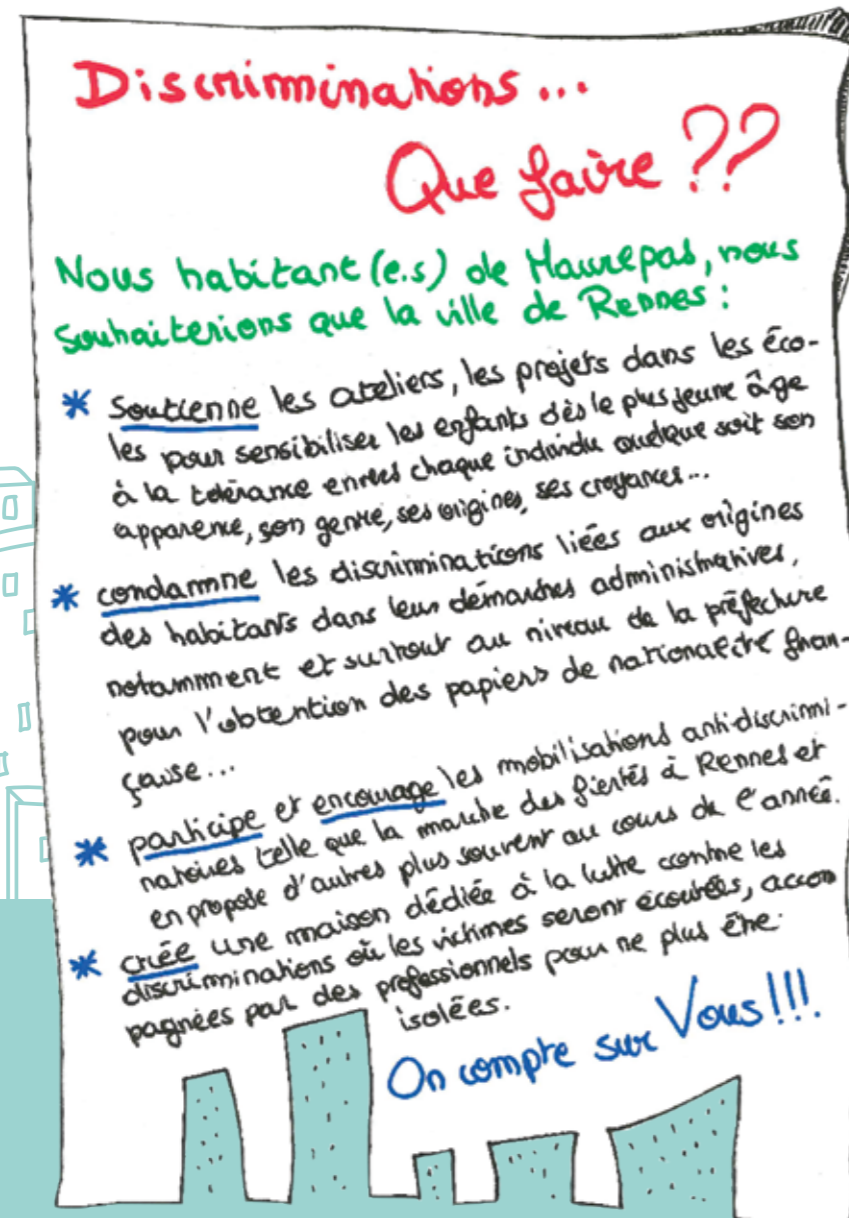 Discriminations...
Que faire ??
Nous habitant(e.s) de Maurepas, nous
souhaiterions que la ville de Rennes :
* soutienne les ateliers, les projets dans les éco-
les pour sensibiliser les enfants dès le plus jeune âge
à la tolérance envers chaque individu quelque soit son
apparence, son genre, ses origines, ses croyances...
* condamne les discriminations liées aux origines
des habitants dans leurs démarches administratives,
notamment et surtout au niveau de la préfecture
pour l'obtention des papiers de nationalité fran-
çaise...
* participe et encourage les mobilisations anti-discrimi-
natoires telle que la marche des fiertés à Rennes et
en propose d'autres plus souvent au cours de l'année.
* créée une maison dédiée à la lutte contre les
discriminations où les victimes seront écoutées, accom
pagnées par des professionnels pour ne plus être
isolées.
On compte sur Vous !!!